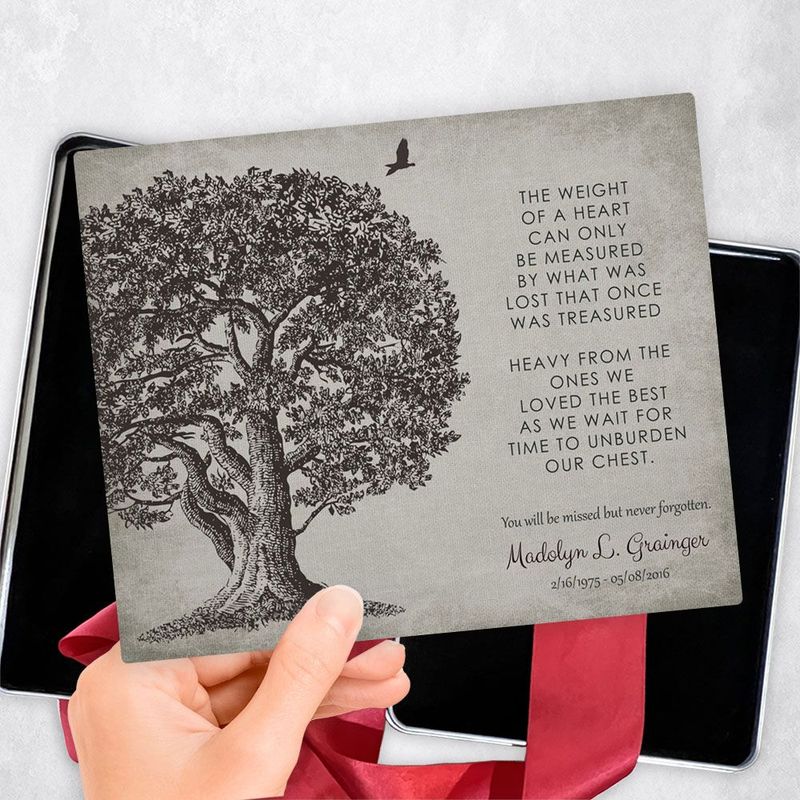 THE WEIGHT
OF A HEART
CAN ONLY
BE MEASURED
BY WHAT WAS
LOST THAT ONCE
WAS TREASURED
HEAVY FROM THE
ONES WE
LOVED THE BEST
AS WE WAIT FOR
TIME TO UNBURDEN
OUR CHEST.
You will be missed but never forgotten.
Madolyn L. Grainger
2/16/1975 - 05/08/2016